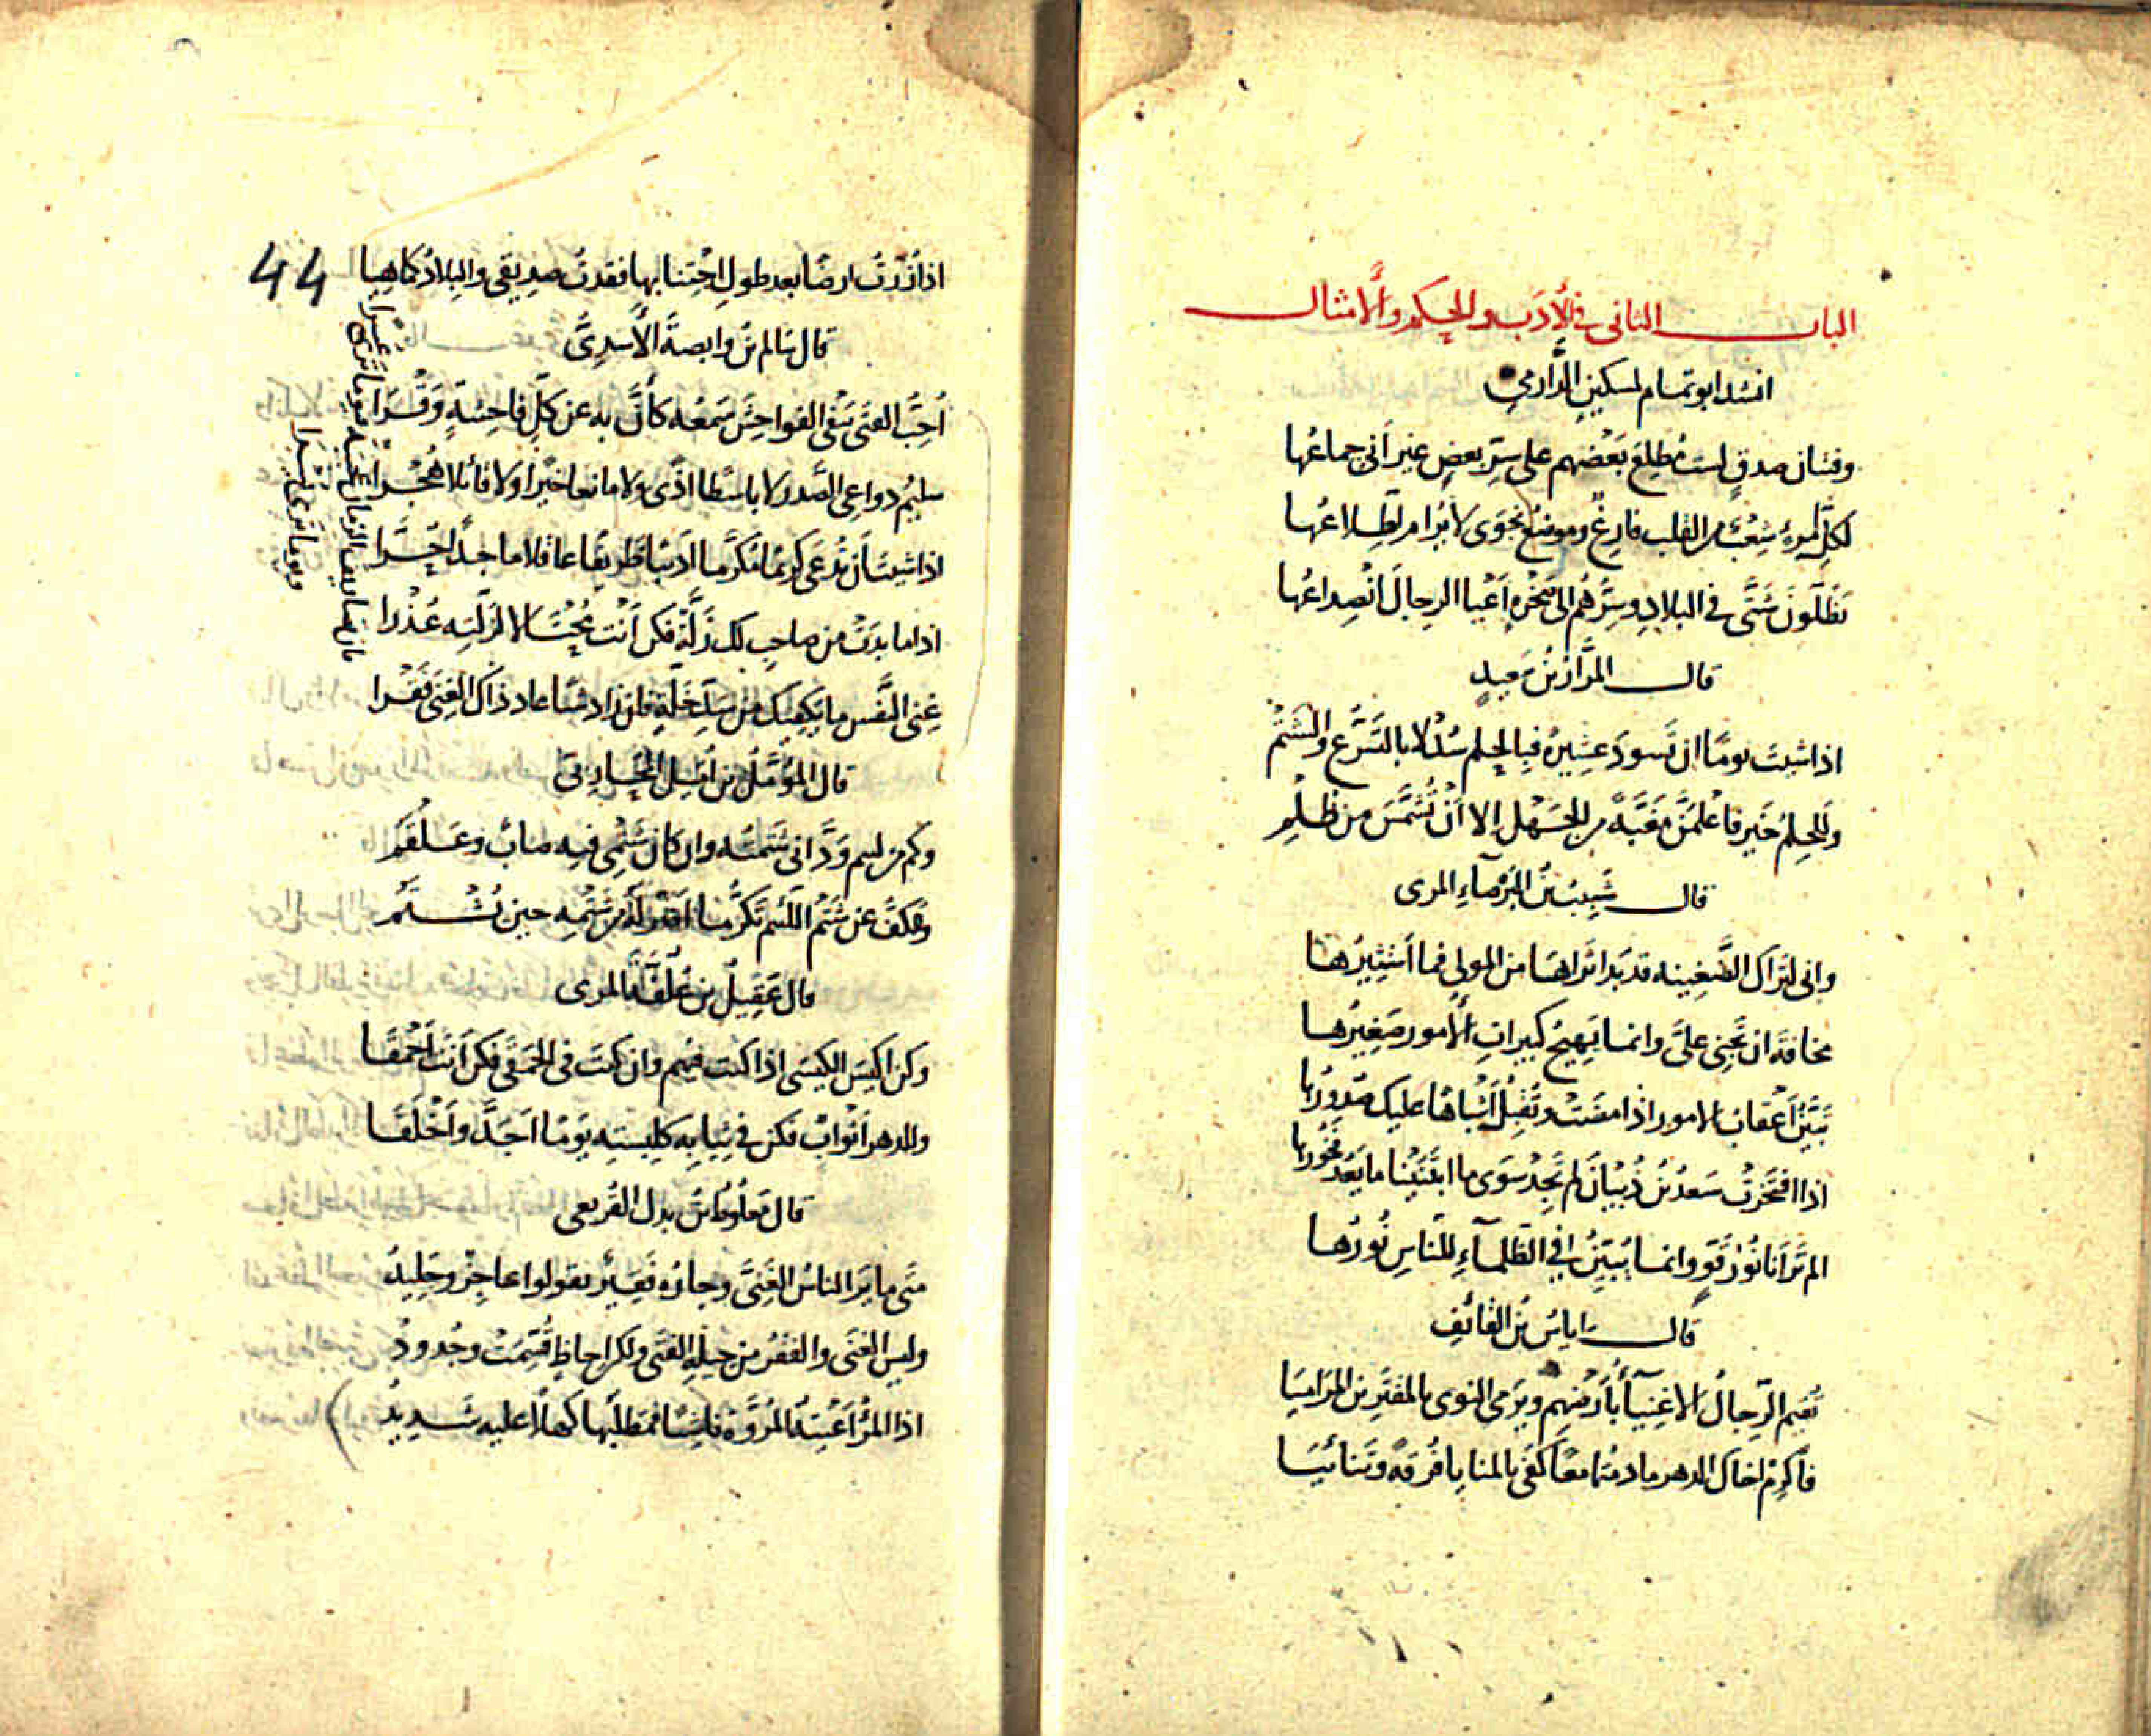 الباب الثانى فى الأدَب والحِكَم والأمثال
انشد ابو تمام لمسكين الدَّارمي
وفتيان صدقٍ لست مُطلِعَ بَعْضِهم على سِرّ بعضٍ غير أنى جماعُها
لكلِّ امرءٍ شِعْبٌ من القلب فارغٌ وموضعُ نجوَى لا يُرام اطِّلاعُها
يَظَلّونَ شَتَّى فى البلادِ وسِرُّهم الى صَخْرةٍ أَعْيا الرجالَ انصِداعُها
قال المرَّار بنُ سَعيدٍ
اذا شيت يومًا ان تسودَ عشيرةً فبالحلم سُدْ لا بالتَسَرُّعِ والشَّتْمِ
وللحِلمُ خَير فاعْلَمَنَّ مَغَبَّةً من الجَهْل إلا أنْ تُشَمَّسَ من ظُلْمِ
قال شَبِيبُ بنُ البَرْصآءِ المرى
وانى لتَرَّاك الضَّغِينه قد بَدا ثَراهَا من المولى فما أستثِيرُها
مخافةَ ان تَجْنِى علىَّ وانما يَهِيجُ كبيراتِ الأمور صَغيرُها
تَبَيَّنُ أَعْقابُ الامور اذا مضَتْ وتُقْبِلُ أَشْباهًا عليك صُدورُها
اذا افتَخَرَتْ سَعدُ بنُ ذُبْيانَ لم تَجِدْ سِوَى ما ابْتَنَيْنا ما يَعُدّ فَخُورُها
الم تَرَ أنا نُورُ قَومٍ وانما يُبَيِّنُ فى الظلمآءِ للنّاسِ نُورُها
قال اياسُ بنُ القائف
تُقيم الرِّجالُ الاغنيآءُ بأرضهِم ويَرمى النوى بالمقترِين المَراميَا
فأكرِمْ اخاك الدهر ما دمتما معًا كفَى بالمنايا فُرقةً وتَنائيَا
44
اذا زُرْتُ ارضًا بعد طولِ اجْتنابها فقدتُ صديقى والبِلادُ كماهِيا
قال سَالم بنُ وابصةَ الأسَدِىُّ
أُحِبُّ الفتَى يَنْفِى الفواحِشَ سَمْعُه كأنَّ به عن كلّ فاحِشةٍ وَقْرَا
سليمُ دواعى الصَّدر لا باسطا اذًى ولا مانعا خيرًا ولا قائلا هُجْرا
اذا شيتَ أن تُدعَى كريمًا مُكَرَّما اديبًا ظريفًا عاقلا ماجدًا حُرَّا
اذا ما بدَتْ من صاحبٍ لك زَلَّةٌ فكن أنت مُحْتَالا لزلّتِه عُذْرا
غِنى النَّفْس ما يَكفِيك من سَدِّ خَلّةٍ فان زاد شيًا عاد ذاك الغِنَى فَقْرا
قال المؤَمَّلُ بن أُمَيل المُحَارِبىّ
وكم من لئيم وَدَّ أنى شَتَمْتُه وان كان شَتْمِى فيه صابٌ وعَلْقَمُ
وللكفُّ عن شَتْم اللئيم تكَرُّما اضَرُّ له من شَتْمِه حين يُشْتَمُ
قال عَقِيلُ بن عُلَّفَةَ المرى
وكن اكيَسَ الكَيسَى اذا كنت فيهم وان كنتَ فى الحَمْقَى فكن أنتَ أحْمقَا
وللدهر أَثْوابٌ فكن فى ثِيابِه كلِبسَتِه يَوْمًا اَجَدَّ وأَخْلَقَا
قال مَعلُوط بن بدل القُريعى
متَى ما يَرَ الناسُ الغَنِىَّ وجارُه فَقِيرٌ يقولوا عاجِزٌ وجَلِيدُ
وليس الغنَى والفقرُ من حِيلةِ الفتَى ولكن احاظٍ قُسِّمَتْ وجُدودُ
اذا المرْأُ أَعْيَتْه المُرُوَّة ناشِئًا فمطلَبُها كهلًا عليه شَدِيدُ